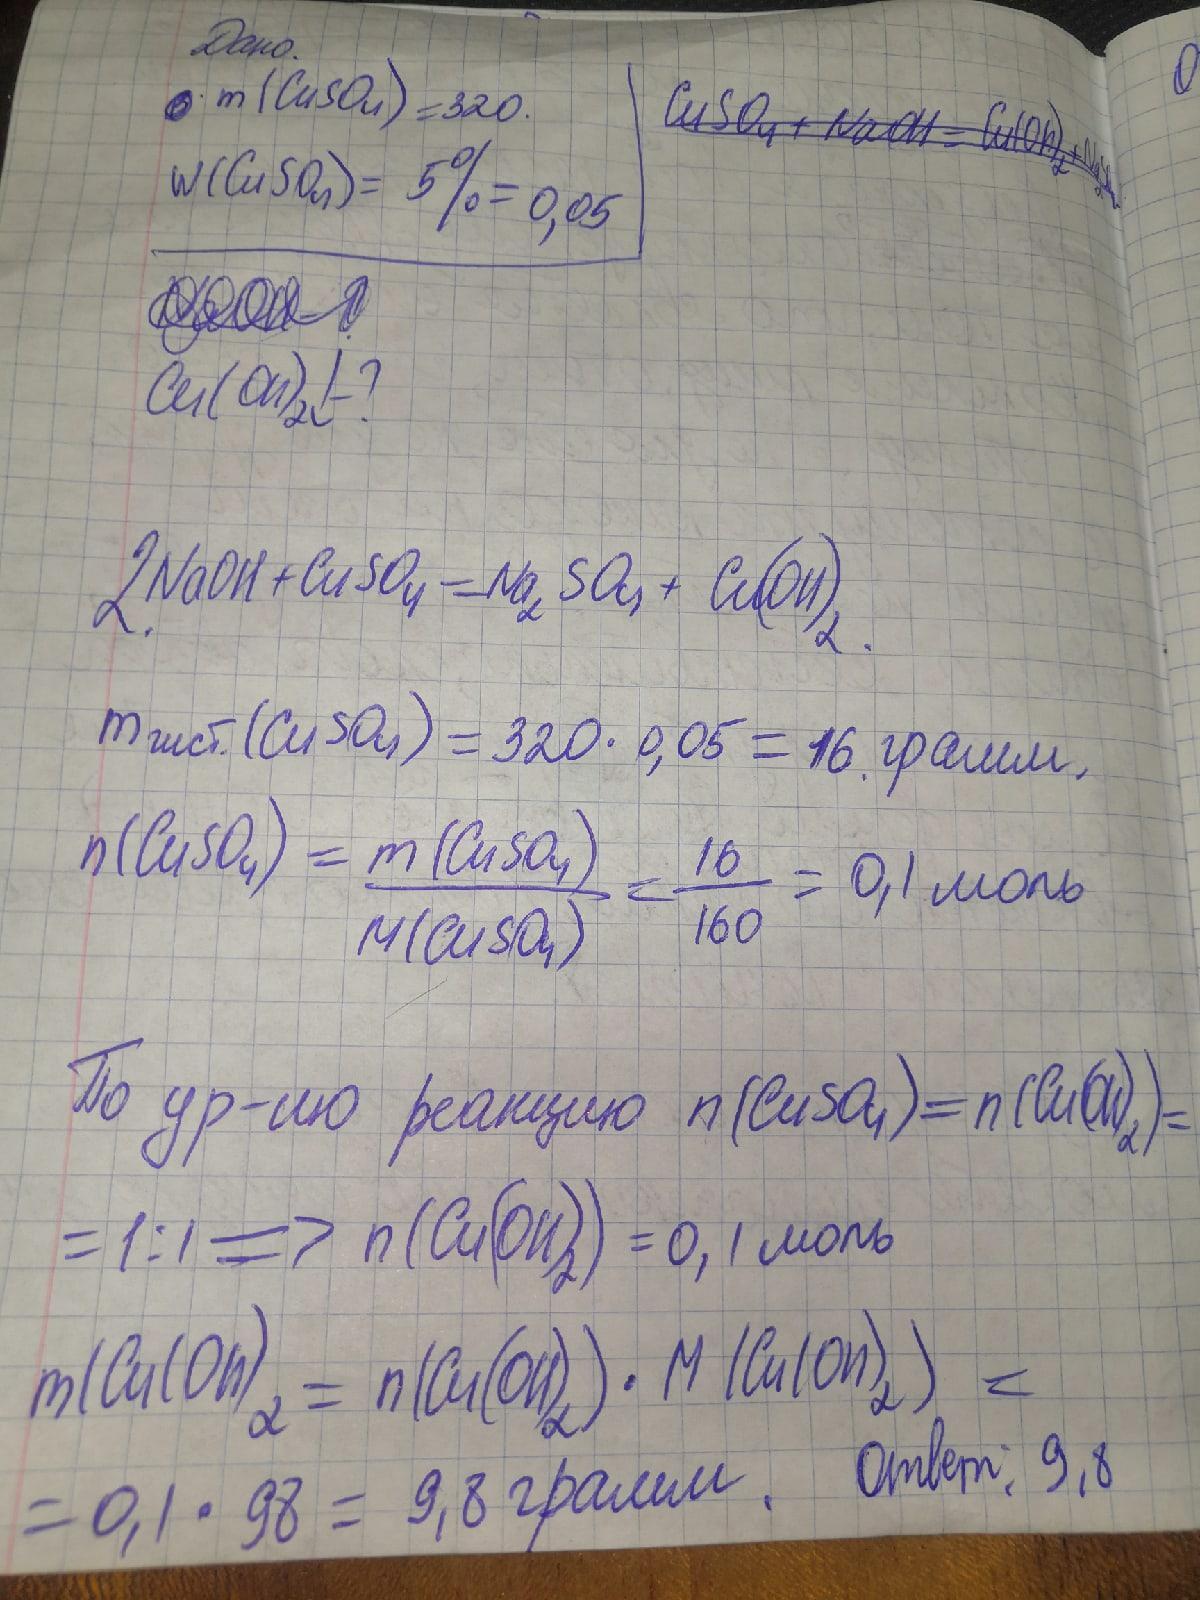 Дано.
m(CuSO4) = 320.
CuSO4 + NaOH = Cu(OH)2 + Na2
W(CuSO4) = 5% = 0,05
Cu(OH)2↓-?
2NaOH + CuSO4 = Na2SO4 + Cu(OH)2.
m чист. (CuSO4) = 320 · 0,05 = 16 грамм.
n(CuSO4) = m(CuSO4) / M(CuSO4) = 16 / 160 = 0,1 моль
По ур-ию реакцию n(CuSO4) = n(Cu(OH)2) =
= 1:1 => n(Cu(OH)2) = 0,1 моль
m(Cu(OH)2 = n(Cu(OH)2) · M(Cu(OH)2) =
= 0,1 · 98 = 9,8 грамм. Ответ: 9,8